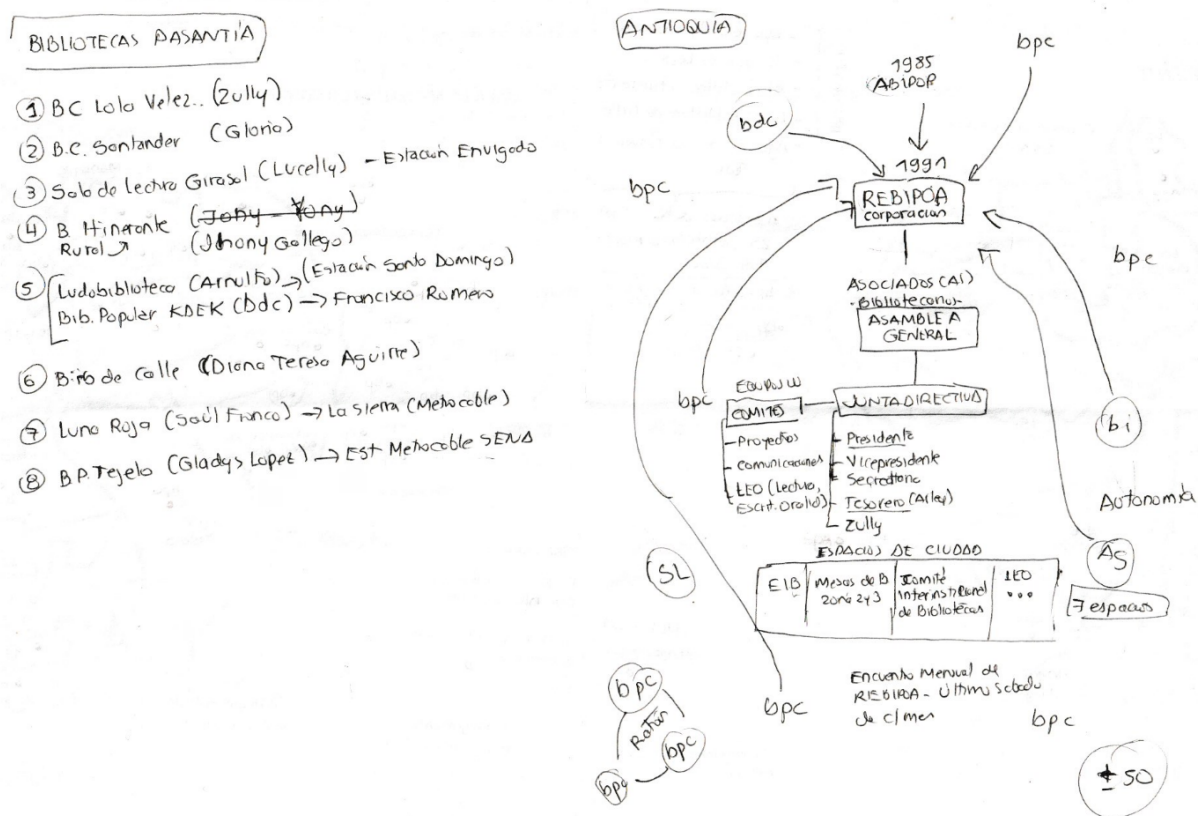 BIBLIOTECAS PASANTÍA
1 BC Lola Velez.. (Zully)
2 B.C. Santander (Gloria)
3 Sala de lectura Girasol (Lucelly) - Estación Envigado
4 B Itinerante (Johy - Yony)
Rural (Jhony Gallego)
5 Ludobiblioteca (Arnulfo) → (Estación Santo Domingo)
Bib. Popular KDEK (bdc) → Francisco Romero
6 Bibo de calle (Diana Teresa Aguirre)
7 Luna Roja (Saúl Franco) → La Sierra (Metrocable)
8 B.P. Tejelo (Gladys Lopez) → Est Metrocable SENA
ANTIOQUIA
bpc
1985
ABIPOP
bdc
1991
bpc
REBIPOA
corporación
bpc
ASOCIADOS (AS)
- Bibliotecarios -
ASAMBLEA
GENERAL
bpc
EQUIPOS
COMITÉS
JUNTA DIRECTIVA
bi
- Proyectos
- Comunicaciones
- LEO (Lectura,
Escrit. Oralid)
- Presidente
- Vicepresidente
- Secretaria
- Tesorero (Arley)
- Zully
Autonomía
AS
SL
ESPACIOS DE CIUDAD
EIB
Mesas de B
zona 2 y 3
Comité
Interinstitucional
de Bibliotecas
LEO
...
7 espacios
Encuentro Mensual de
REBIPOA - Último Sábado
de c/mes
bpc
bpc
bpc
Rotan
bpc
bpc
± 50